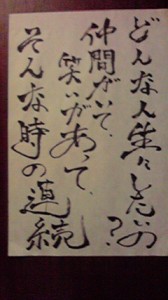 どんな人生にしたいの?
仲間がいて、
笑いがあって、
そんな時の連続